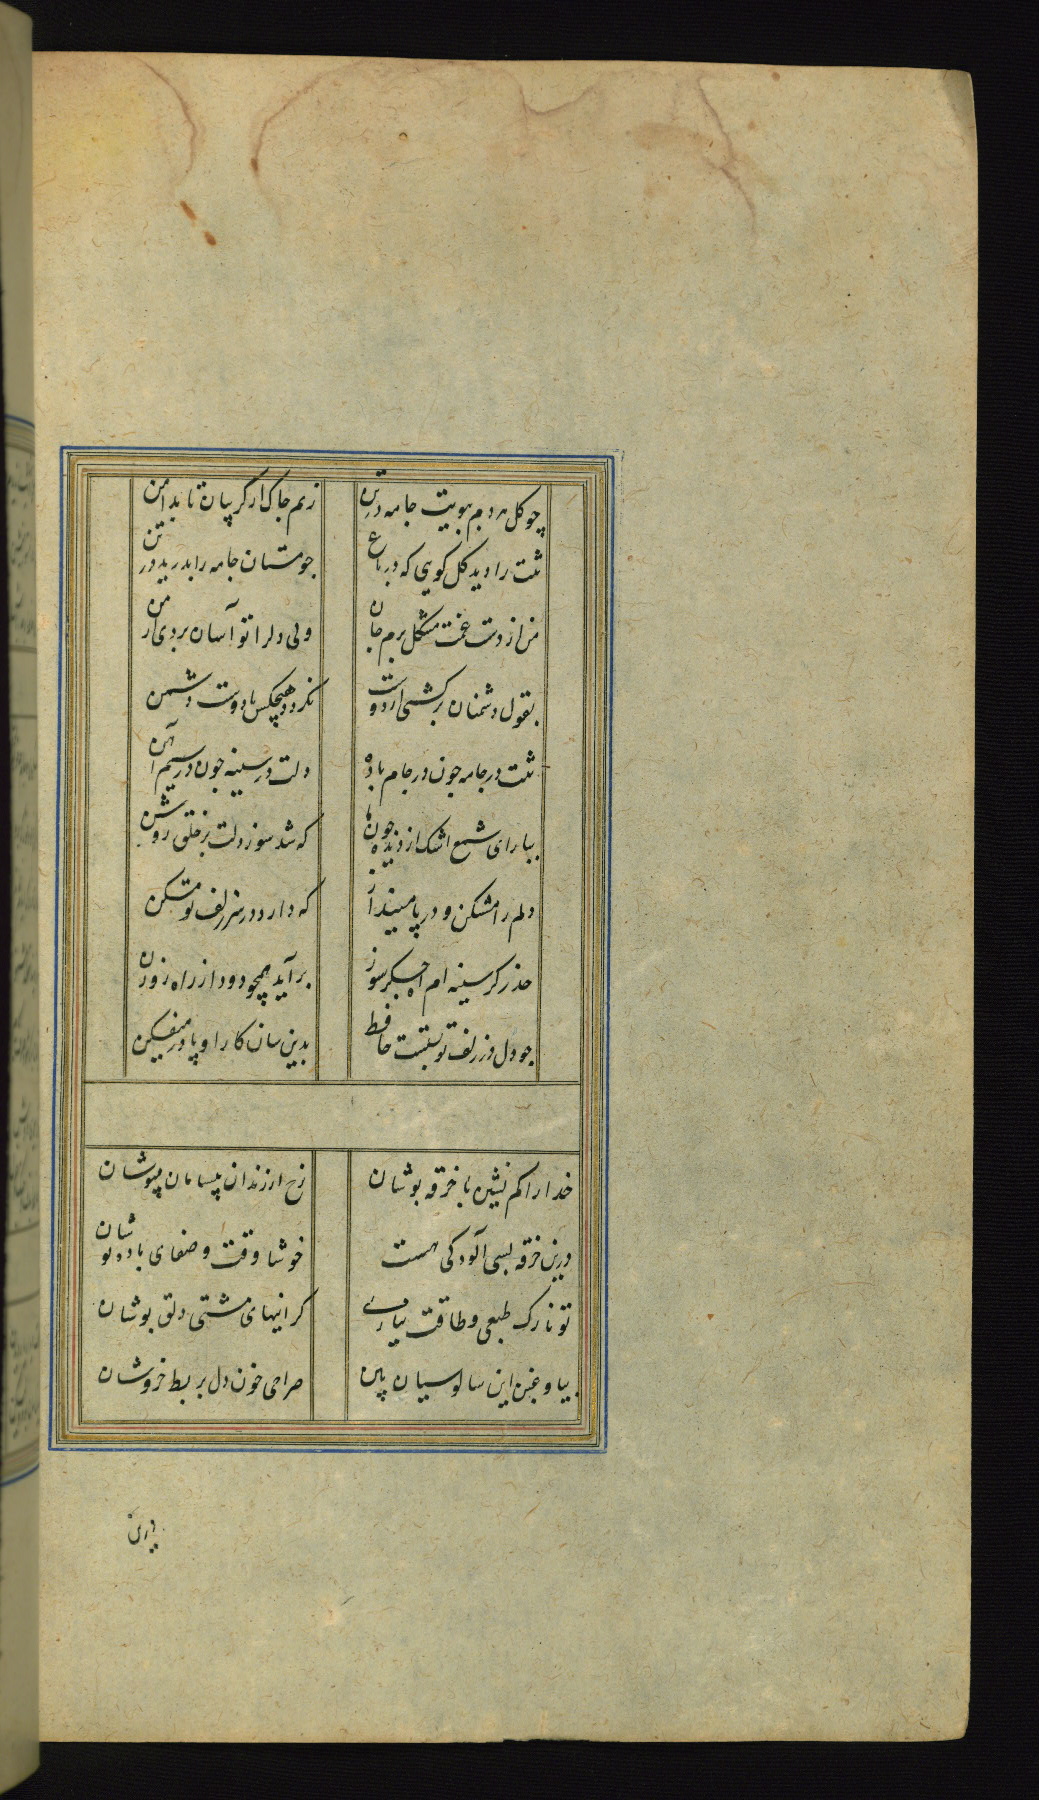 چو کل هر دم ببویت جامه در تن زنم چاک از کریبان تا بدامن
تنت را دید کل کویی که در باغ جو مستان جامه را بدرید در تن
من از دست غمت مشکل برم جان ولی دل را تو آسان بردی از من
بقول دشمنان برکشتی از دوست نکردد هیچکس با دوست دشمن
تنت در جامه جون در جام باده دلت در سینه جون در سیم آهن
ببار ای شمع اشک از دیده جون که شد سوز دلت بر خلق روشن
دلم را مشکن و در پا مینداز که دارد در سر زلف تو مسکن
حذر کز سینه ام آه جکر سوز برآید همچو دود از راه روزن
جو دل در زلف تو بستست حافظ بدین سان کار او در پا میفکن
خدا را کم نشین با خرقه پوشان رخ از رندان بیسامان مپوشان
درین خرقه بسی آلودکی هست خوشا وقت و صفای باده نوشان
تو نازک طبعی و طاقت نیاری کرانیهای مشتی دلق پوشان
بیا و غبن این سالوسیان بین صراحی خون دل بربط خروشان